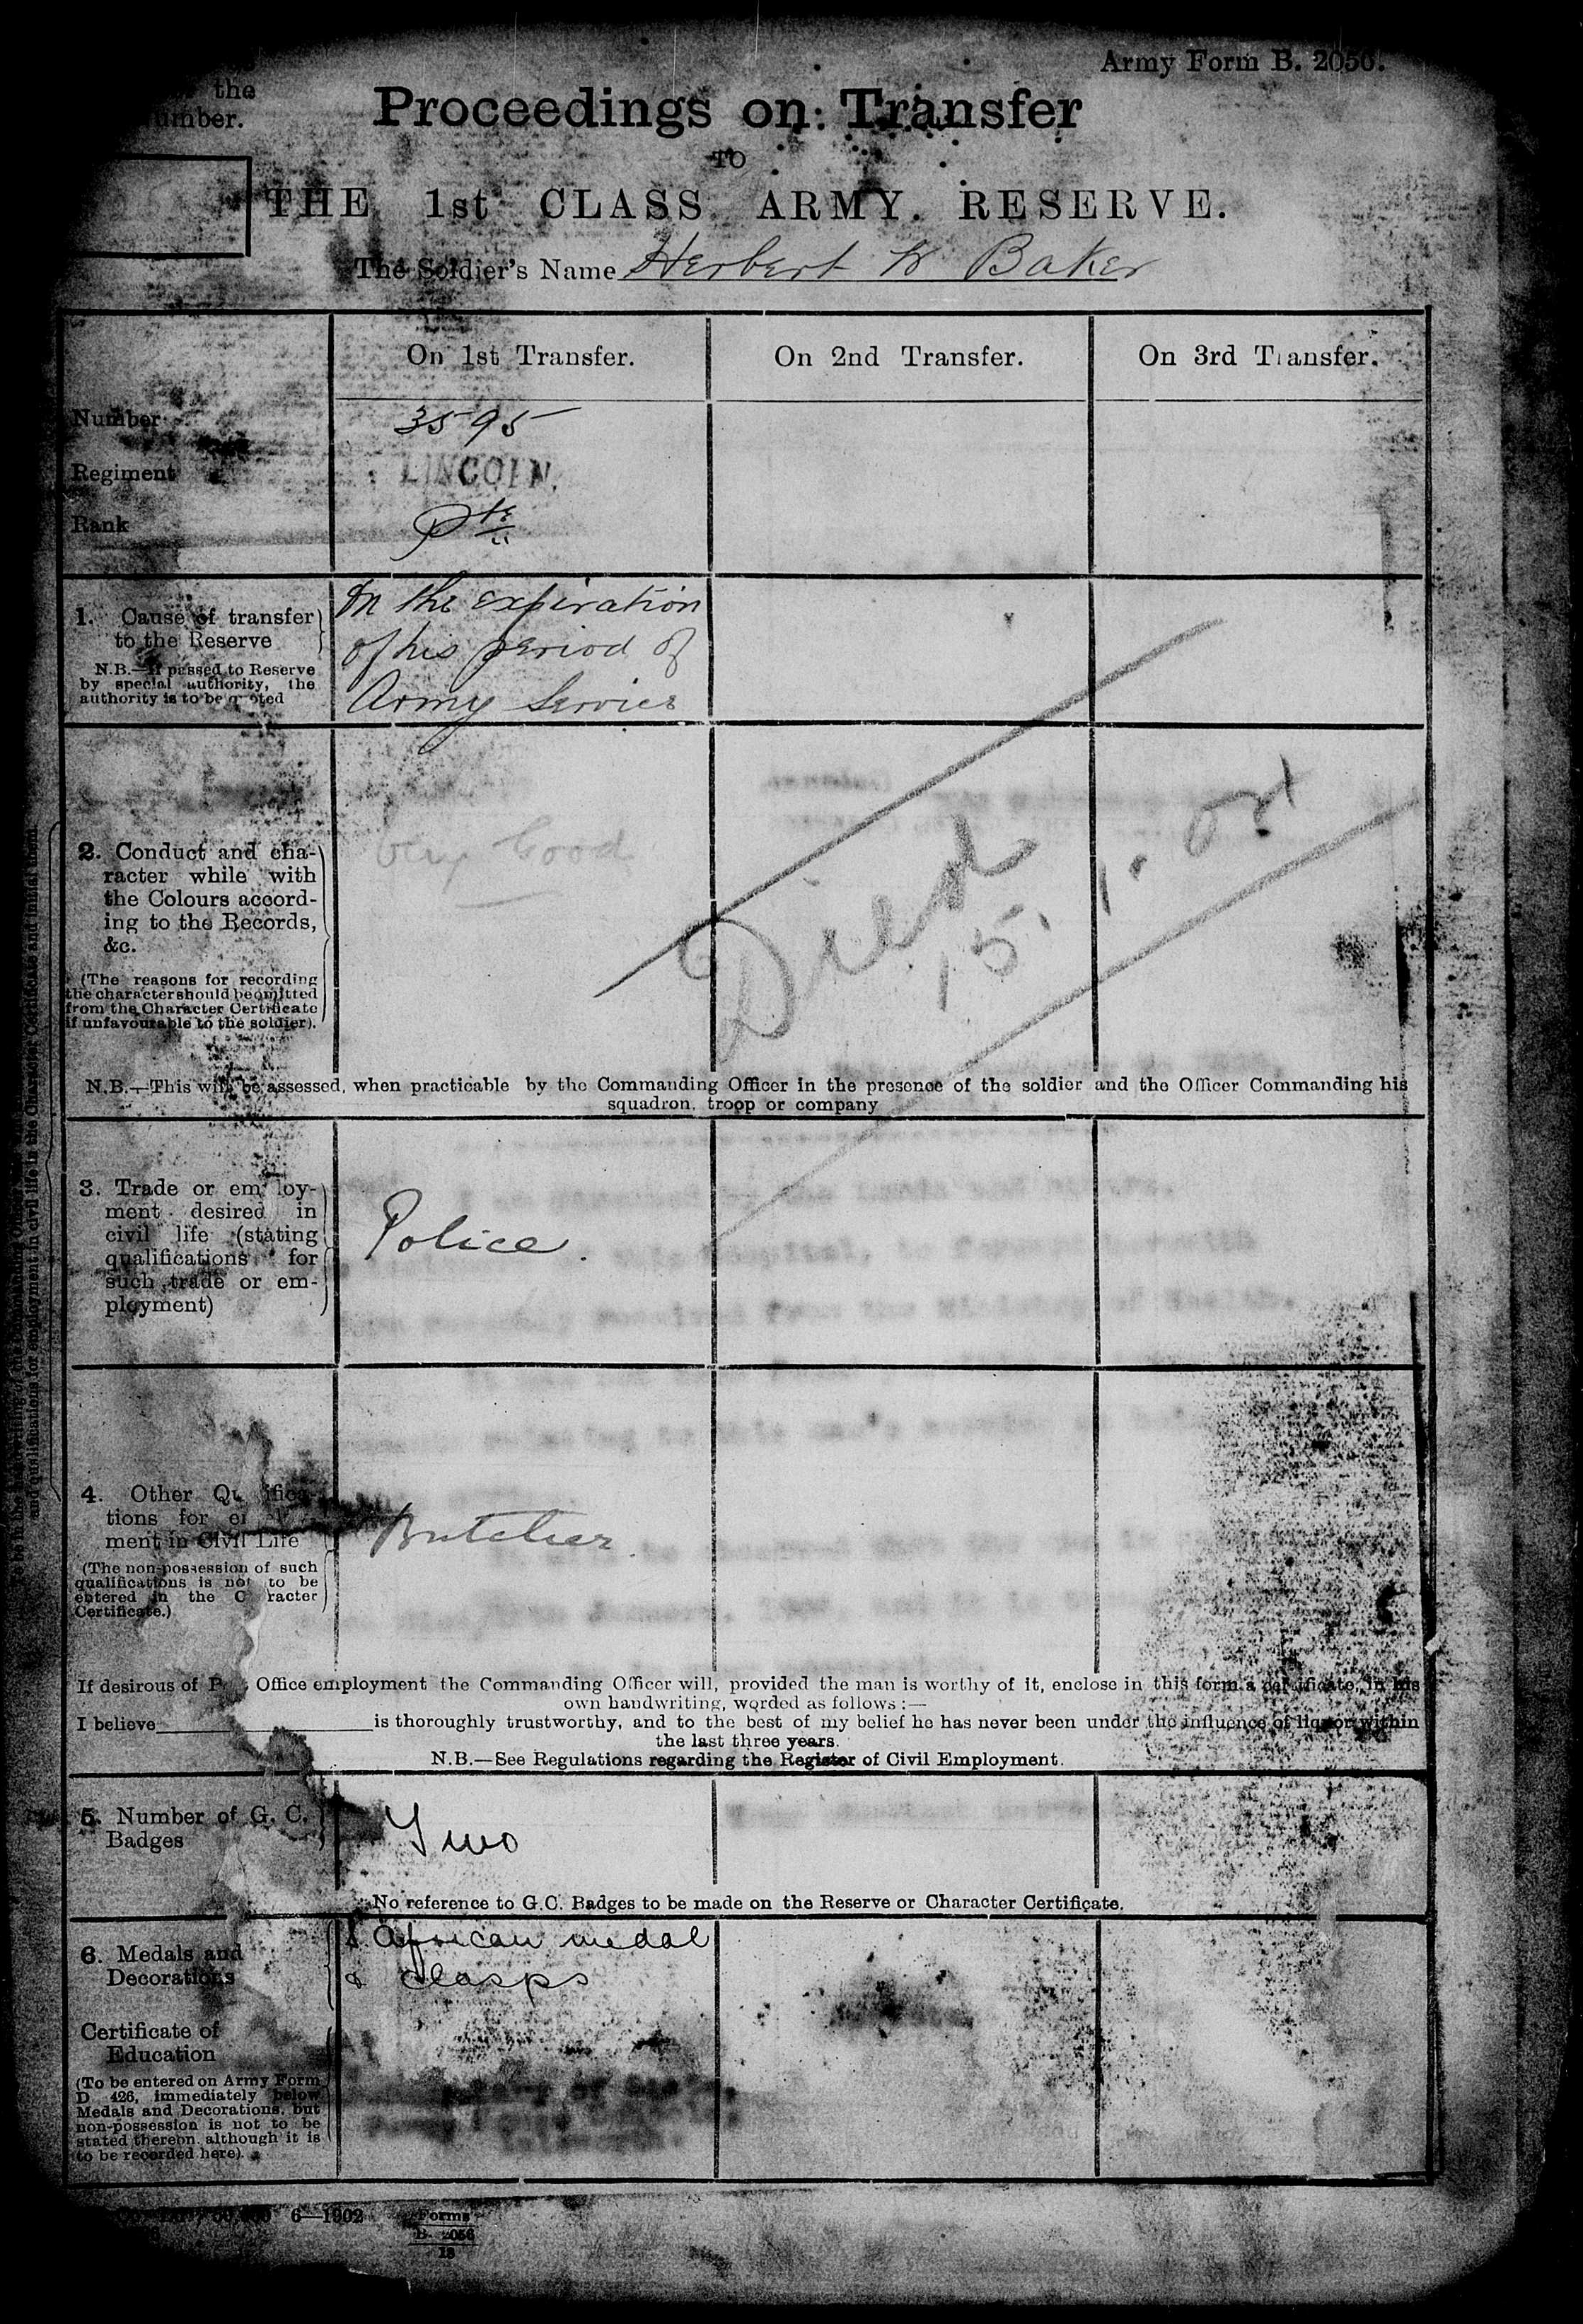 Army Form B. 2056.
the
umber.
Proceedings on Transfer
TO
THE 1st CLASS ARMY RESERVE.
The Soldier's Name Herbert W Baker
On 1st Transfer. On 2nd Transfer. On 3rd Transfer.
Number 3595
Regiment LINCOLN.
Rank Pte
1. Cause of transfer to the Reserve
N.B.—If passed to Reserve
by special authority, the
authority is to be quoted
On the expiration
of his period of
Army Service
2. Conduct and cha-
racter while with
the Colours accord-
ing to the Records,
&c.
(The reasons for recording
the character should be omitted
from the Character Certificate
if unfavourable to the soldier).
Very Good
Died
15. 1.
N.B.—This will be assessed, when practicable by the Commanding Officer in the presence of the soldier and the Officer Commanding his
squadron, troop or company
3. Trade or employ-
ment desired in
civil life (stating
qualifications for
such trade or em-
ployment)
Police.
4. Other Qualifica-
tions for
ment in Civil Life
(The non-possession of such
qualifications is not to be
entered in the Character
Certificate.)
Butcher.
If desirous of Office employment the Commanding Officer will, provided the man is worthy of it, enclose in this form a certificate, in his
own handwriting, worded as follows:—
I believe is thoroughly trustworthy, and to the best of my belief he has never been under the influence of liquor within
the last three years.
N.B.—See Regulations regarding the Register of Civil Employment.
5. Number of G. C.
Badges
Two
No reference to G.C. Badges to be made on the Reserve or Character Certificate.
6. Medals and
Decorations
S African medal
& clasps
Certificate of
Education
(To be entered on Army Form
D 426, immediately below
Medals and Decorations, but
non-possession is not to be
stated thereon, although it is
to be recorded here).
6—1902
Forms
B. 2056
18